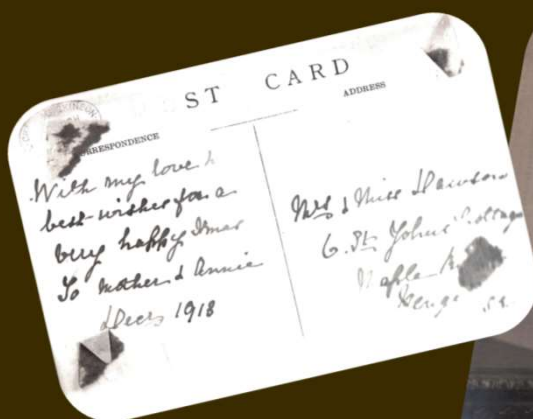 ST CARD
RRESPONDENCE
ADDRESS
With my love &
best wishes for a
very happy Xmas
To Mother & Annie
Decr 1918
Mrs & Miss Dawson
6. St. Johns Cottage
Maple
Penge S.E.